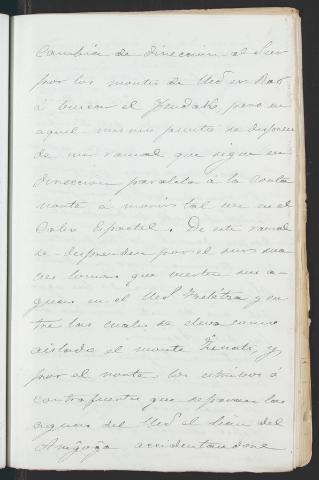 Cambia de direccion al Sur
por los montes de Ued er Rab
á buscar el Yendak, pero en
aquel mismo punto se despren
de un ramal que sigue en
direccion paralela á la costa
norte á morir tal vez en el
Cabo Espartel. De este ramal
se desprenden por el sur sua
ves lomas que vierten sus a-
guas en el Ued y en
tre las cuales se eleva como
aislado el monte Zinats y
por el norte los estribos ó
contrafuertes que separan las
aguas del Ued el Lian del
accidentandose